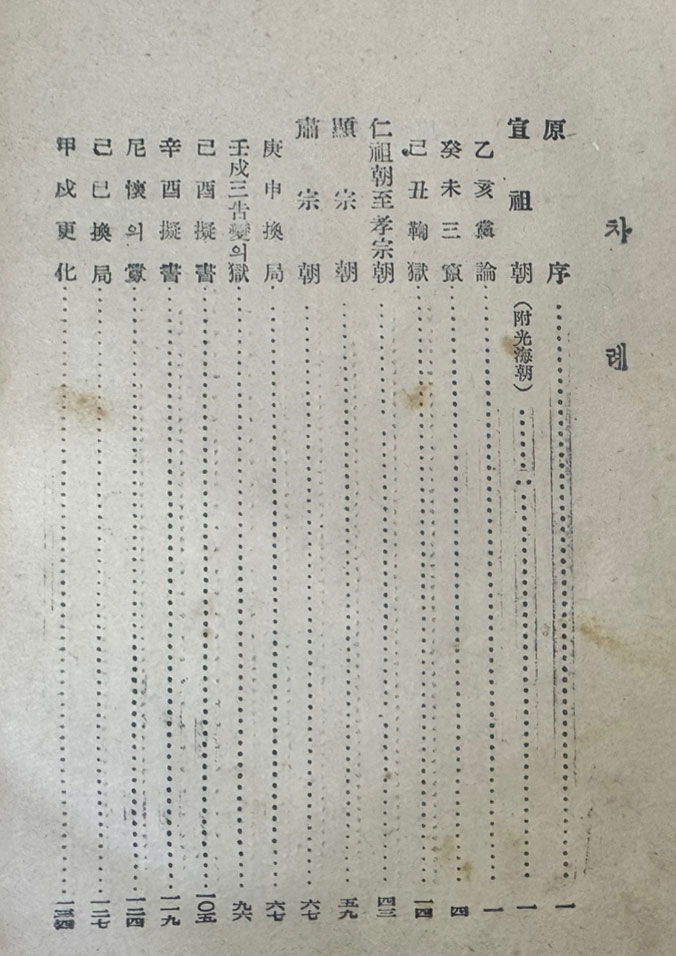 차례
原序 一
宣祖朝(附光海朝) 一
乙亥黨論 一
癸未三竄 四
己丑鞠獄 一四
仁祖朝至孝宗朝 四三
顯宗朝 五九
肅宗朝 六七
庚申換局 六七
壬戌三告變의獄 九六
己酉擬書 一〇五
辛酉擬書 一一九
尼懷의黨 一二四
己巳換局 一二七
甲戌更化